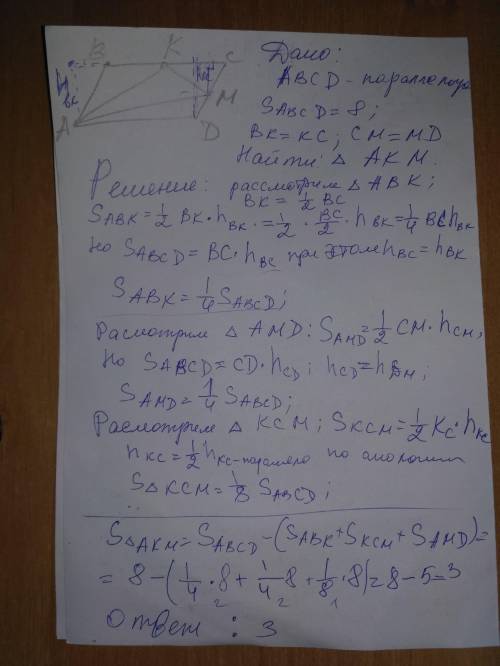 B K C
M
A D
h BC
Дано:
ABCD - параллело
SABCD = 8;
BK = KC; CM = MD
Найти: △ AKM.
Решение: рассмотрим △ ABK;
BK = 1/2 BC
SABK = 1/2 BK · hBK · = 1/2 · BC/2 · hBK = 1/4 BC hBK
Но SABCD = BC · hBC при этом hBC = hBK
SABK = 1/4 SABCD;
Расмотрим △ AMD: SAMD = 1/2 CM · hCM,
Но SABCD = CD · hCD; hCD = hDM;
SAMD = 1/4 SABCD;
Расмотрим △ KCM; SKCM = 1/2 KC · hKC
hKC = 1/2 hKC-паралело по аналогии
S△KCM = 1/8 SABCD;
S△AKM = SABCD - (SABK + SKCM + SAMD) =
= 8 - (1/4 · 8 + 1/4 8 + 1/8 · 8) = 8 - 5 = 3
2 2 1
Ответ : 3